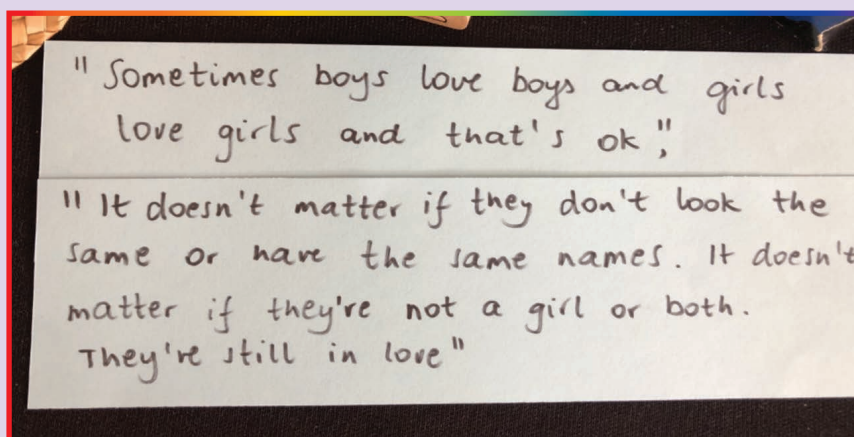 "Sometimes boys love boys and girls
love girls and that's ok",
"It doesn't matter if they don't look the
same or have the same names. It doesn't
matter if they're not a girl or both.
They're still in love"